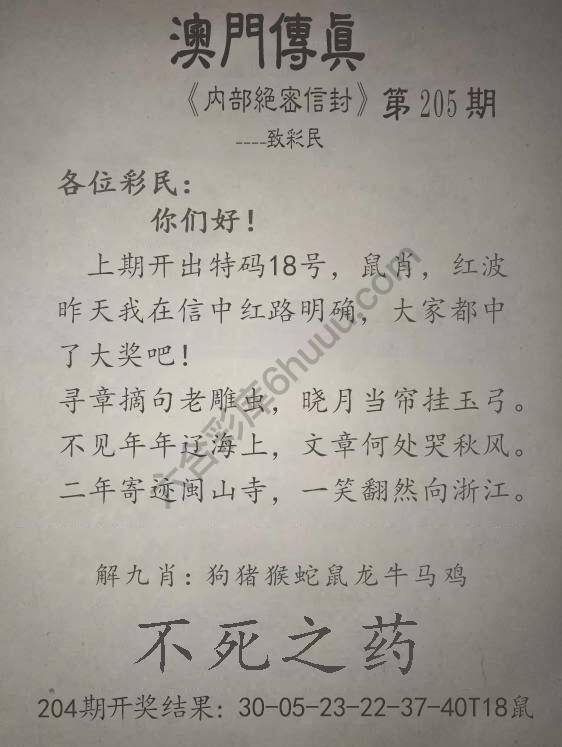 澳門傳眞
《内部絕密信封》第205期
----致彩民
各位彩民：
你们好！
上期开出特码18号，鼠肖，红波
昨天我在信中红路明确，大家都中
了大奖吧！
寻章摘句老雕虫，晓月当帘挂玉弓。
不见年年辽海上，文章何处哭秋风。
二年寄迹闽山寺，一笑翻然向浙江。
解九肖：狗猪猴蛇鼠龙牛马鸡
不死之药
204期开奖结果：30-05-23-22-37-40T18鼠
六合彩库6huuu.com